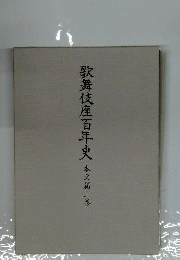 歌舞伎座百年史
本文篇上巻